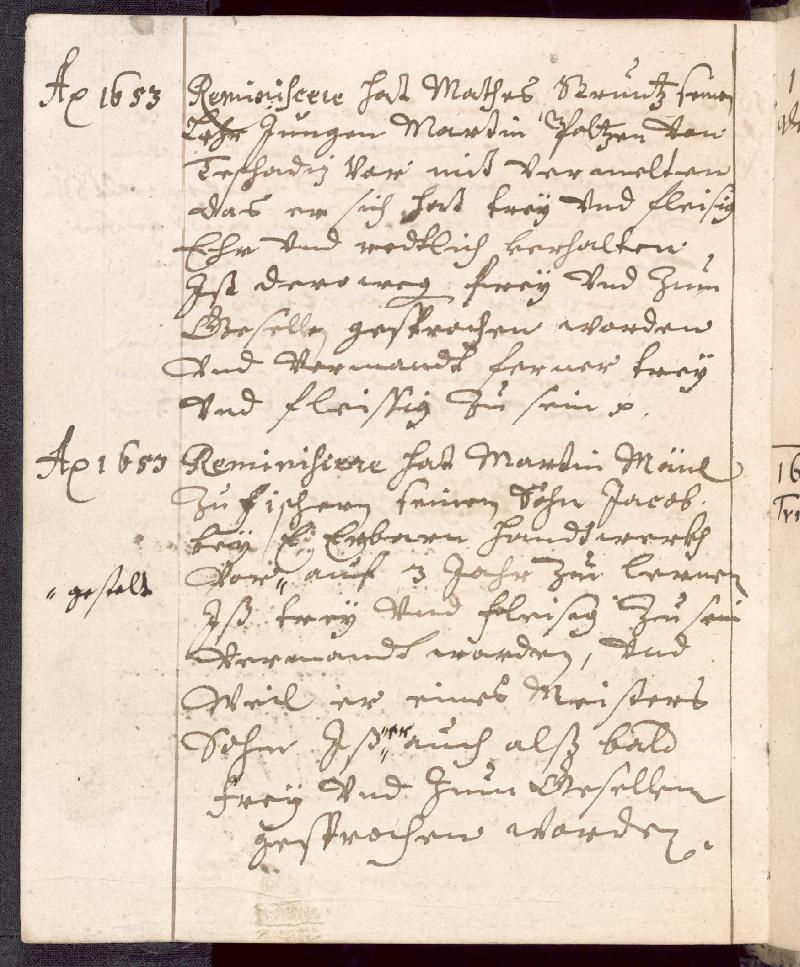 Ao 1653 Reminiscere hat Mathes Struntz seinen
Lehr Jungen Martin Poltzen von
Teschadiz vor mit vermelten
das er sich hat trey vnd fleisig
Ehr vnd redtlich verhalten
Ist deroweg frey vnd zum
Gesellen gesprochen worden
vnd vermandt ferner trey
vnd fleissig zu sein
Ao 1653 Reminiscere hat Martin Mäul
zu fischern seinen Sohn Jacob
bey E. Erbarn Handtwerkh
vor " auf 3 Jahr zu lernen
" gestelt
Ist trey vnd fleisig zu sein
vermandt worden, vnd
Weil er eines Meisters
Sohn Ist " er auch alß bald
frey vnd zum Gesellen
gesprochen worden.